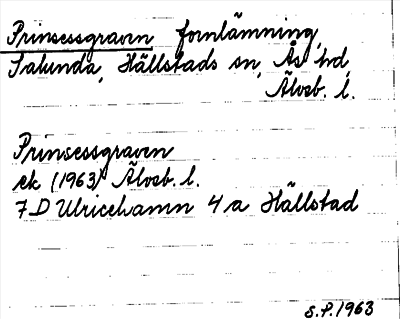 Prinsessgraven fornlämning,
Salunda, Hällstads sn, Ås hd,
Älvsb. l.
Prinsessgraven
ek (1963) Älvsb. l.
7D Ulricehamn 4 a Hällstad
S.P. 1963